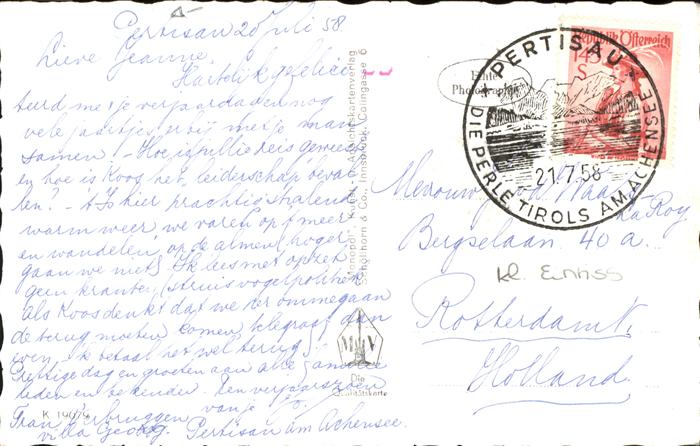 Pertisau 20 juli 58.
Lieve Jeanne,
Hartelijk gefelici-
teerd met je verjaardag en nog
vele jaartjes erbij met je man
samen. Hoe is jullie reis geweest
en hoe is Koos het leiderschap beval
len? 't Is hier prachtig stralend
warm weer, we varen op 't meer
en wandelen, op de almen, hoger
gaan we niet. Ik lees met opzet
geen kranten (struisvogelpolitiek
als Koos denkt dat we ter ommegaan
de terug moeten komen telegraaf dan
even, ik betaal het wel terug!
Prettige dagen groeten aan alle familie
leden en bekenden. Een verjaarszoen
van je
Frau Verbruggen
villa Georg. Pertisau am Achensee.
K 19679
"Monopol", Kunst- u. Ansichtskartenverlag
Schöllhorn & Co., Innsbruck, Colingasse 6
MV
Die
Qualitätskarte
Echte
Photographie
Republik Österreich
1·45
S
PERTISAU
DIE PERLE TIROLS AM ACHENSEE
21.7.58
Mevrouw v.d. Waart
ka Roy
Bergselaan 40 a.
kl. Einriss
Rotterdam N.
Holland.